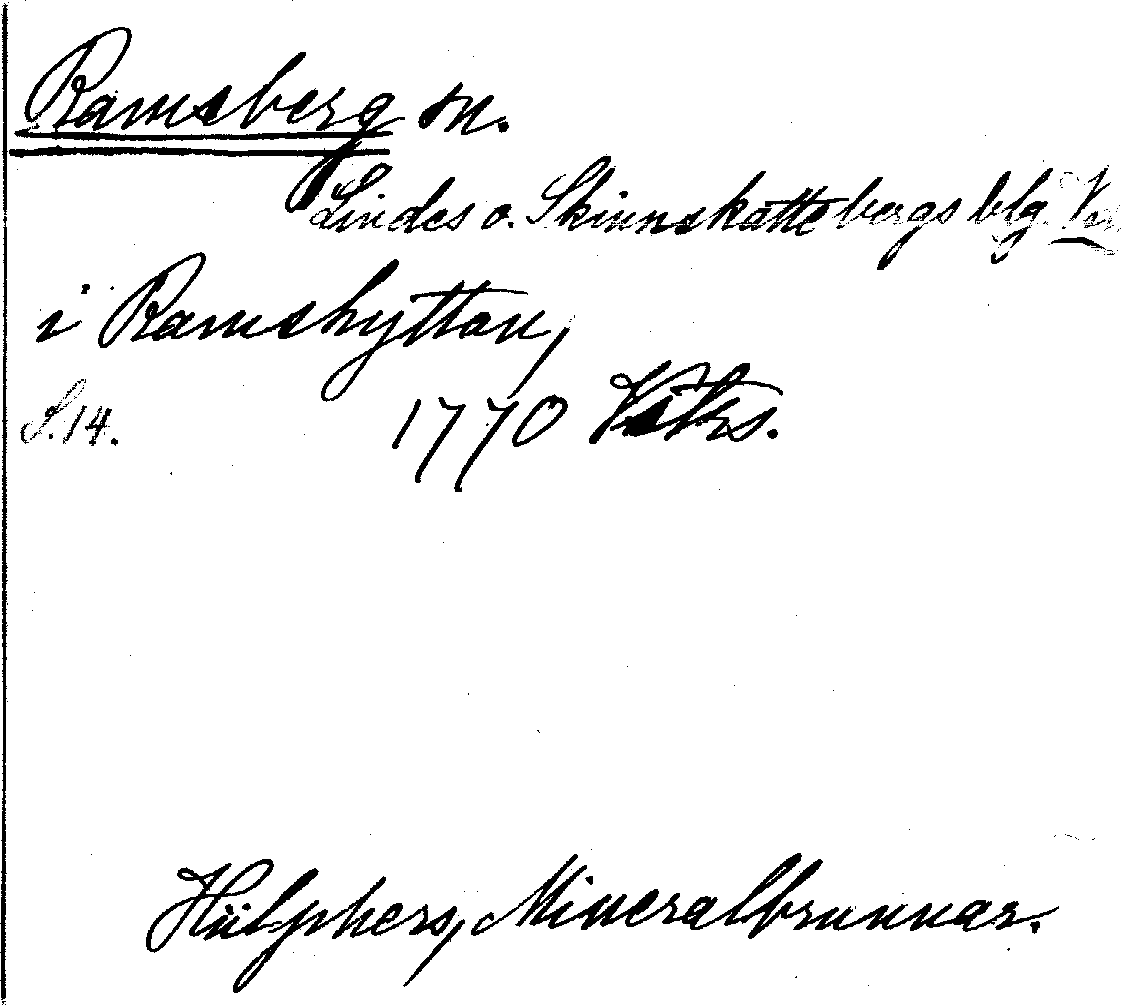 Ramsberg sn.
Lindes o. Skinnskattebergs blg.
i Ramshyttan,
S. 14. 1770
Hülphers, Mineralbrunnar.